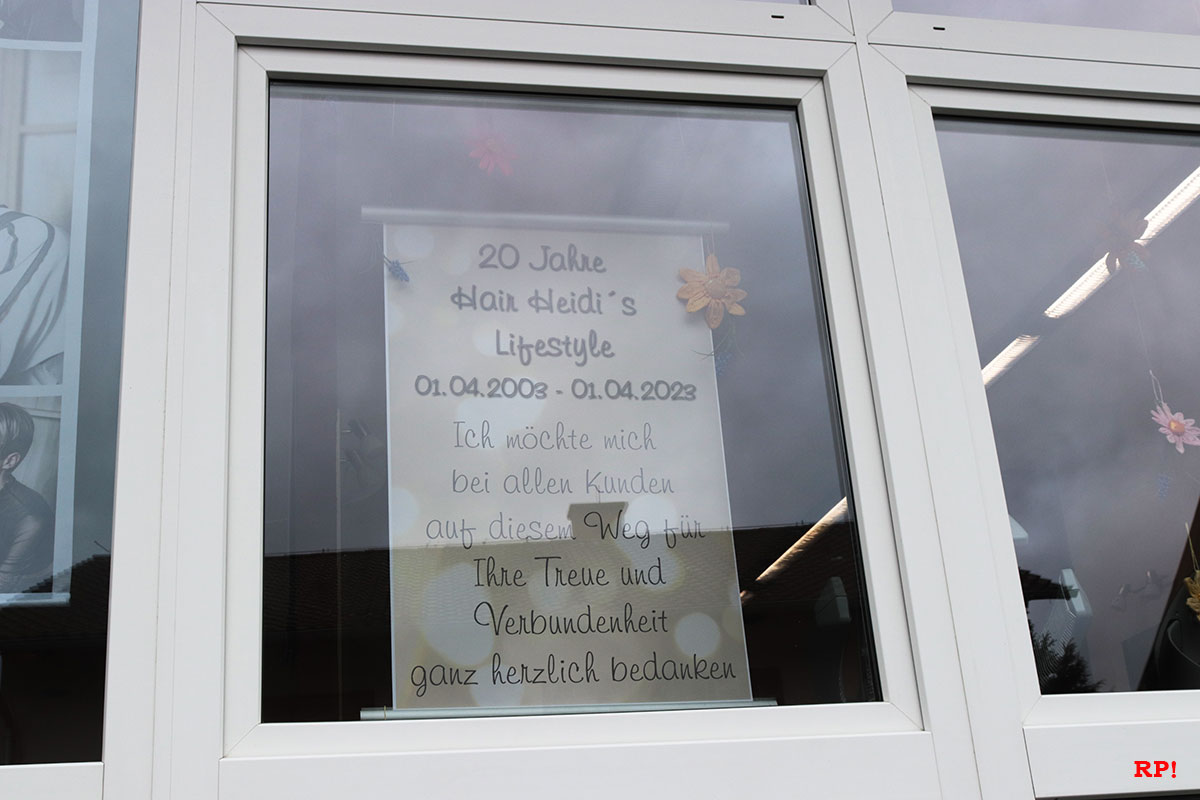 20 Jahre
Hair Heidi´s
Lifestyle
01.04.2003 - 01.04.2023
Ich möchte mich
bei allen Kunden
auf diesem Weg für
Ihre Treue und
Verbundenheit
ganz herzlich bedanken
RP!